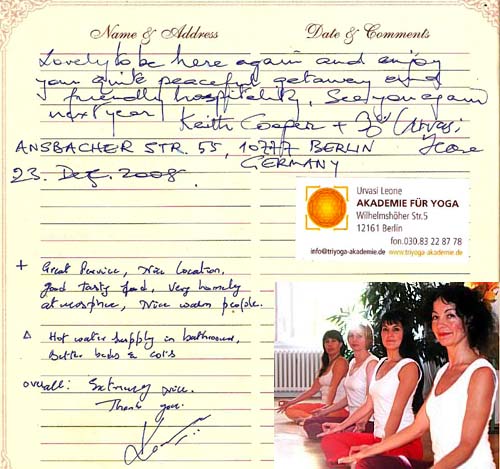 Name & Address
Date & Comments
Lovely to be here again and enjoy
your quite peaceful getaway and
friendly hospitality, See you again
next year
Keith Cooper + Urvasi
Leone
ANSBACHER STR. 55, 10777 BERLIN
GERMANY
23. Dez. 2008.
Urvasi Leone
AKADEMIE FÜR YOGA
Wilhelmshöher Str.5
12161 Berlin
fon.030.83 22 87 78
info@triyoga-akademie.de www.triyoga-akademie.de
+ Great Service, Nice location,
good tasty food, very homely
atmosphere, Nice warm people.
Δ Hot water supply in bathroom,
Better beds & cots
overall: Extremely nice.
Thank you.